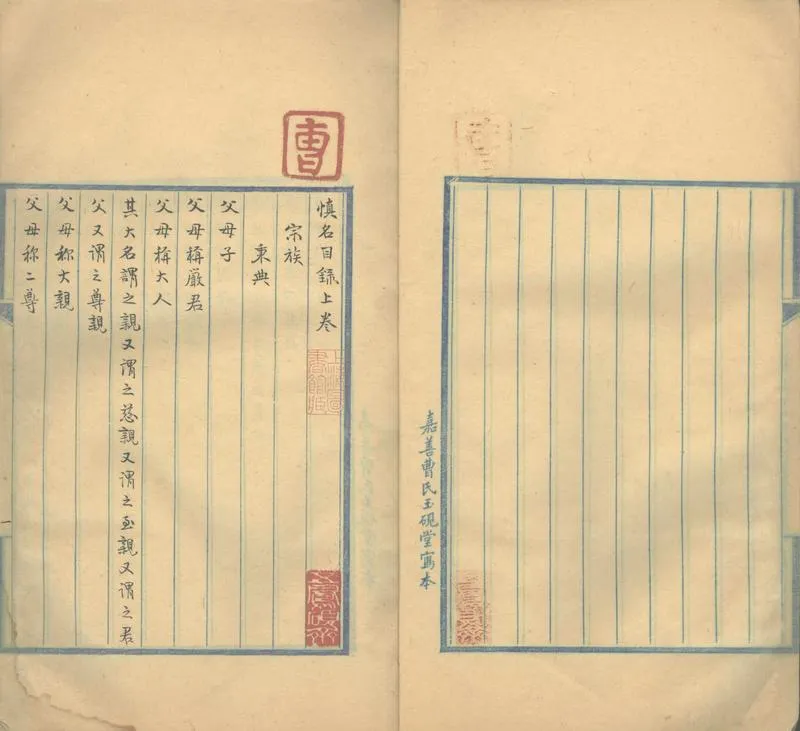 慎名目録上巻
宗族
秉典
父母子
父母稱嚴君
父母稱大人
其大名謂之親又謂之慈親又謂之至親又謂之君
父又謂之尊親
父母称大親
父母称二尊
曹
上海圖
書館藏
嘉善曹氏玉硯堂寫本